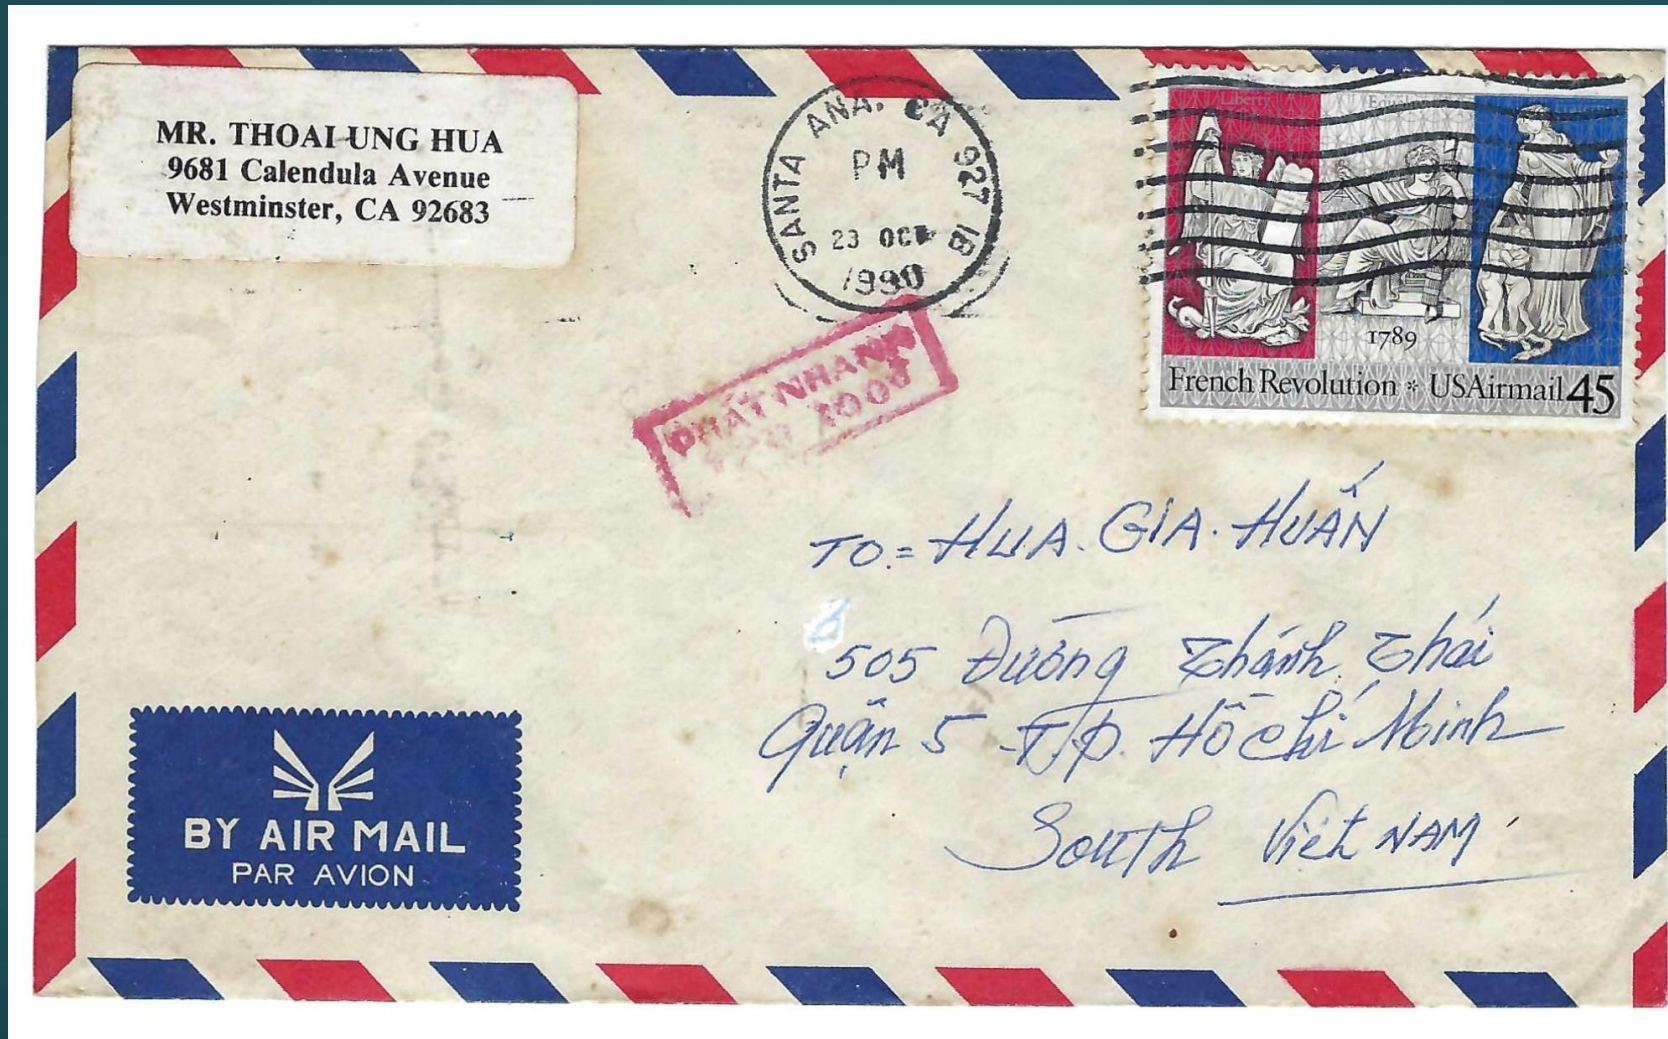 MR. THOAI UNG HUA
9681 Calendula Avenue
Westminster, CA 92683
SANTA ANA. CA 927 1B
PM
23 OCT
1990
Liberty
Equality
Fraternity
1789
French Revolution * USAirmail 45
PHÁT NHANH
200đ
TO = HUA. GIA. HUẤN
505 Đường Thánh Thái
Quận 5 - T/p. Hồ Chí Minh
South Việt NAM
BY AIR MAIL
PAR AVION